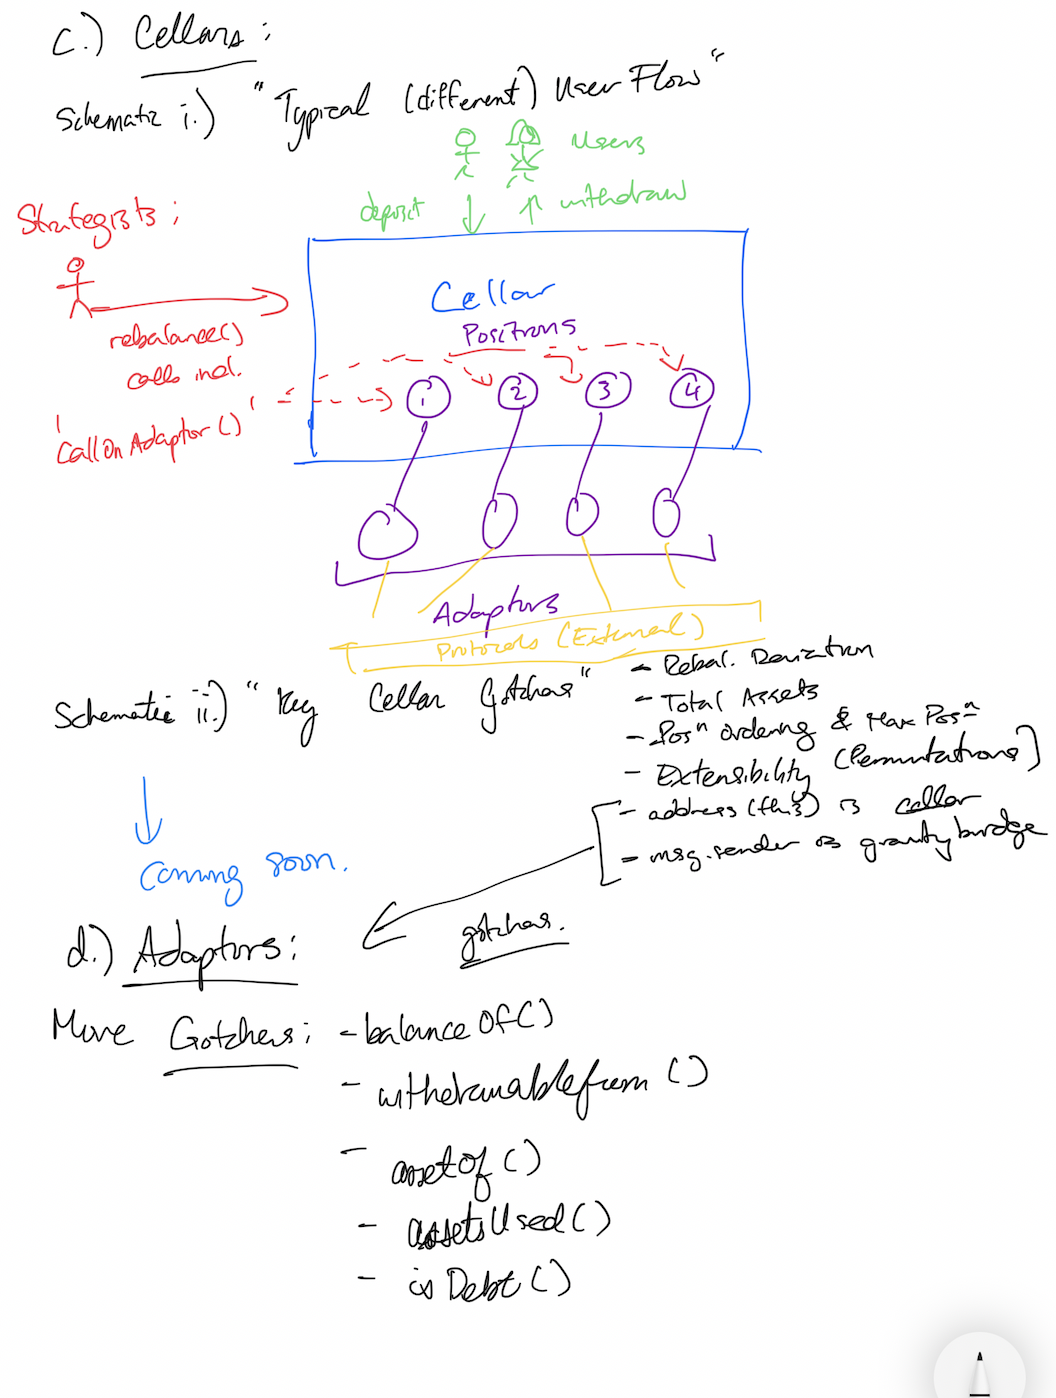 c.) Cellars:
Schematic i.) "Typical (different) User Flow"
Users
deposit withdraw
Strategists:
Cellar
Positions
rebalance()
calls incl.
'callOnAdaptor()'
1 2 3 4
Adaptors
Protocols (External)
Schematic ii.) "Key Cellar Gotchas"
- Rebal. Deviation
- Total Assets
- Posn ordering & Max Posn
- Extensibility (Permutations)
- address(this) is cellar
- msg.sender is gravitybridge
Coming soon.
gotchas.
d.) Adaptors:
More Gotchas:
- balanceOf()
- withdrawableFrom()
- assetOf()
- assetsUsed()
- isDebt()